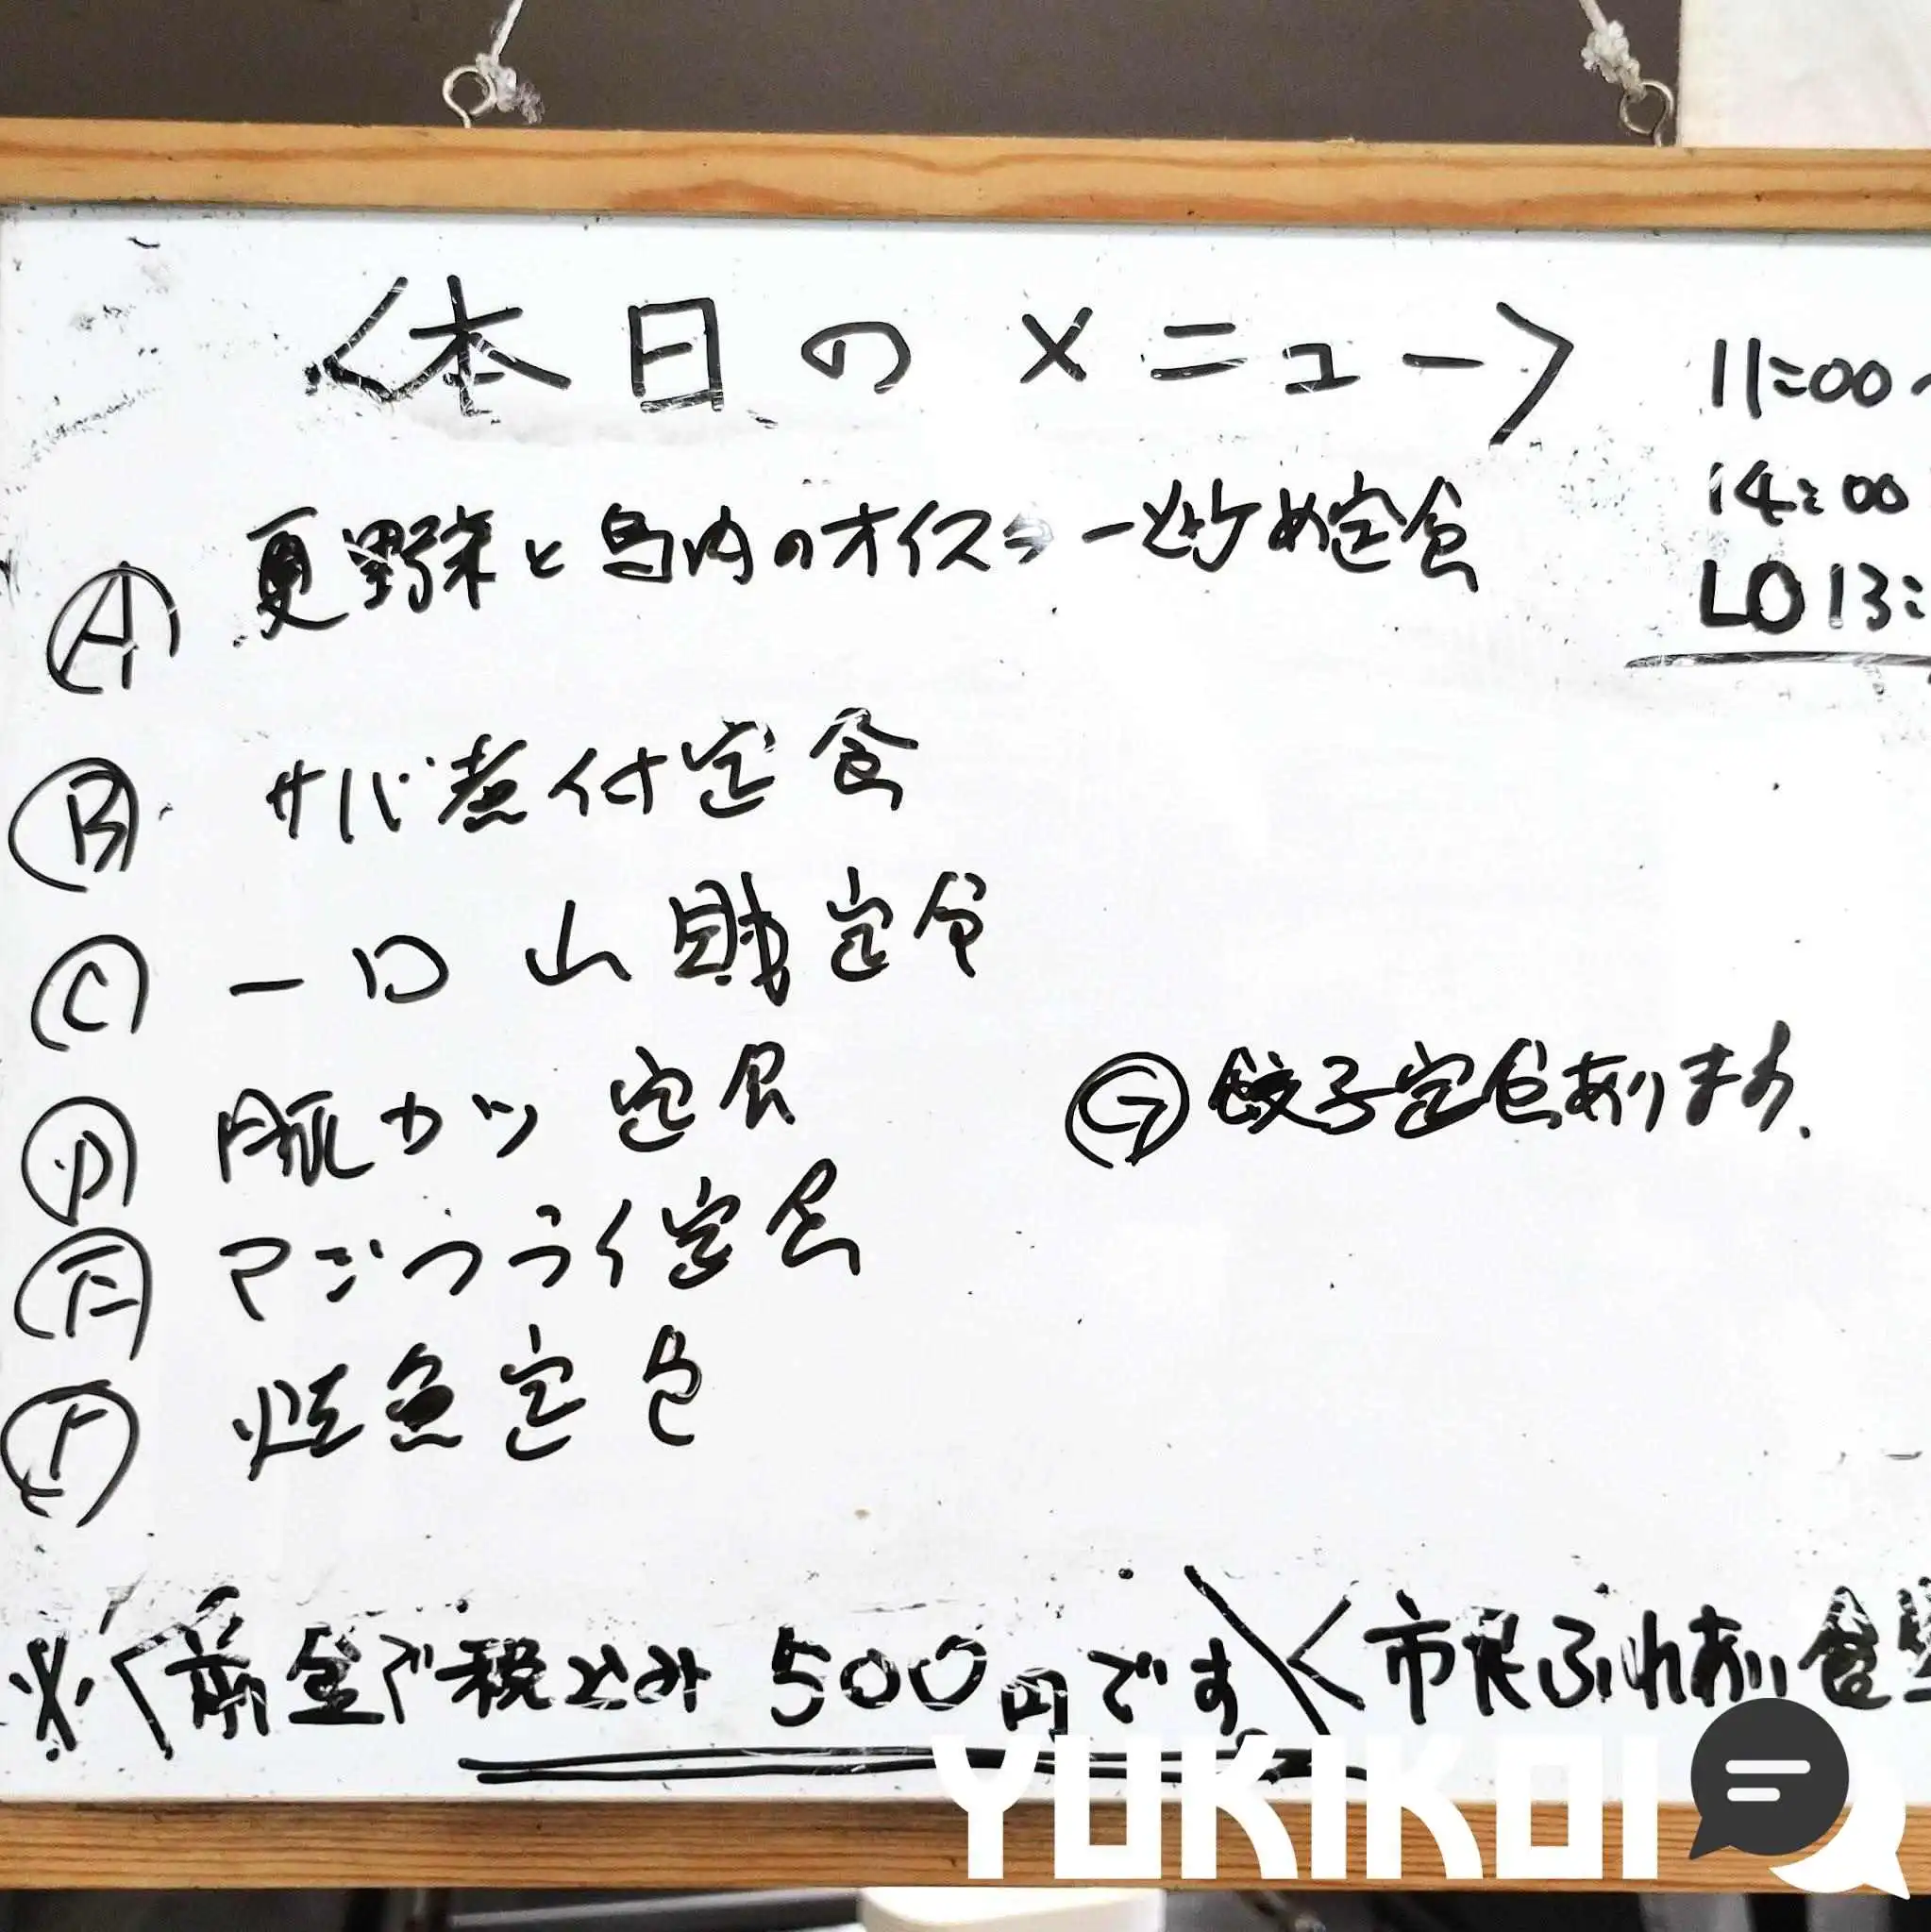 <本日のメニュー>
11:00~
14:00
LO 13:
Ⓐ 夏野菜と鳥肉のオイスター炒め定食
Ⓑ サバ煮付定食
Ⓒ 一口山賊定食
Ⓓ 豚カツ定食
Ⓔ アジフライ定食
Ⓕ 焼魚定食
Ⓖ 餃子定食あります.
※<前金で税込み500円です。><市民ふれあい食堂
YUKIKOI